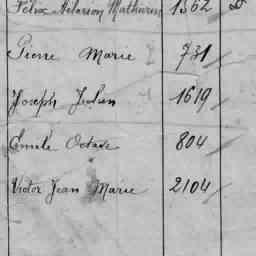 Félix Hilarion Mathurin 1362
Pierre Marie 731
Joseph Julien 1619
Emile Octave 804
Victor Jean Marie 2104